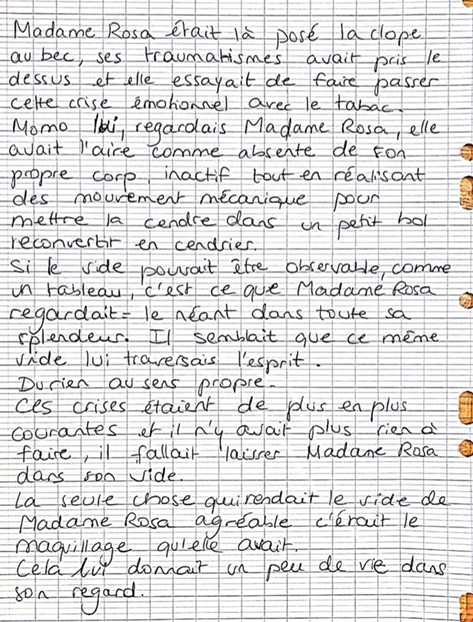 Madame Rosa était là posé la clope
au bec, ses traumatismes avait pris le
dessus et elle essayait de faire passer
cette crise émotionnel avec le tabac.
Momo lui, regardais Madame Rosa, elle
avait l'aire comme absente de son
propre corp, inactif tout en réalisant
des mouvement mécanique pour
mettre la cendre dans un petit bol
reconvertir en cendrier.
Si le vide pouvait être observable, comme
un tableau, c'est ce que Madame Rosa
regardait - le néant dans toute sa
splendeur. Il semblait que ce même
vide lui traversais l'esprit.
Du rien au sens propre.
Ces crises étaient de plus en plus
courantes et il n'y avait plus rien à
faire, il fallait laisser Madame Rosa
dans son vide.
La seule chose qui rendait le vide de
Madame Rosa agréable c'était le
maquillage qu'elle avait.
Cela lui donnait un peu de vie dans
son regard.